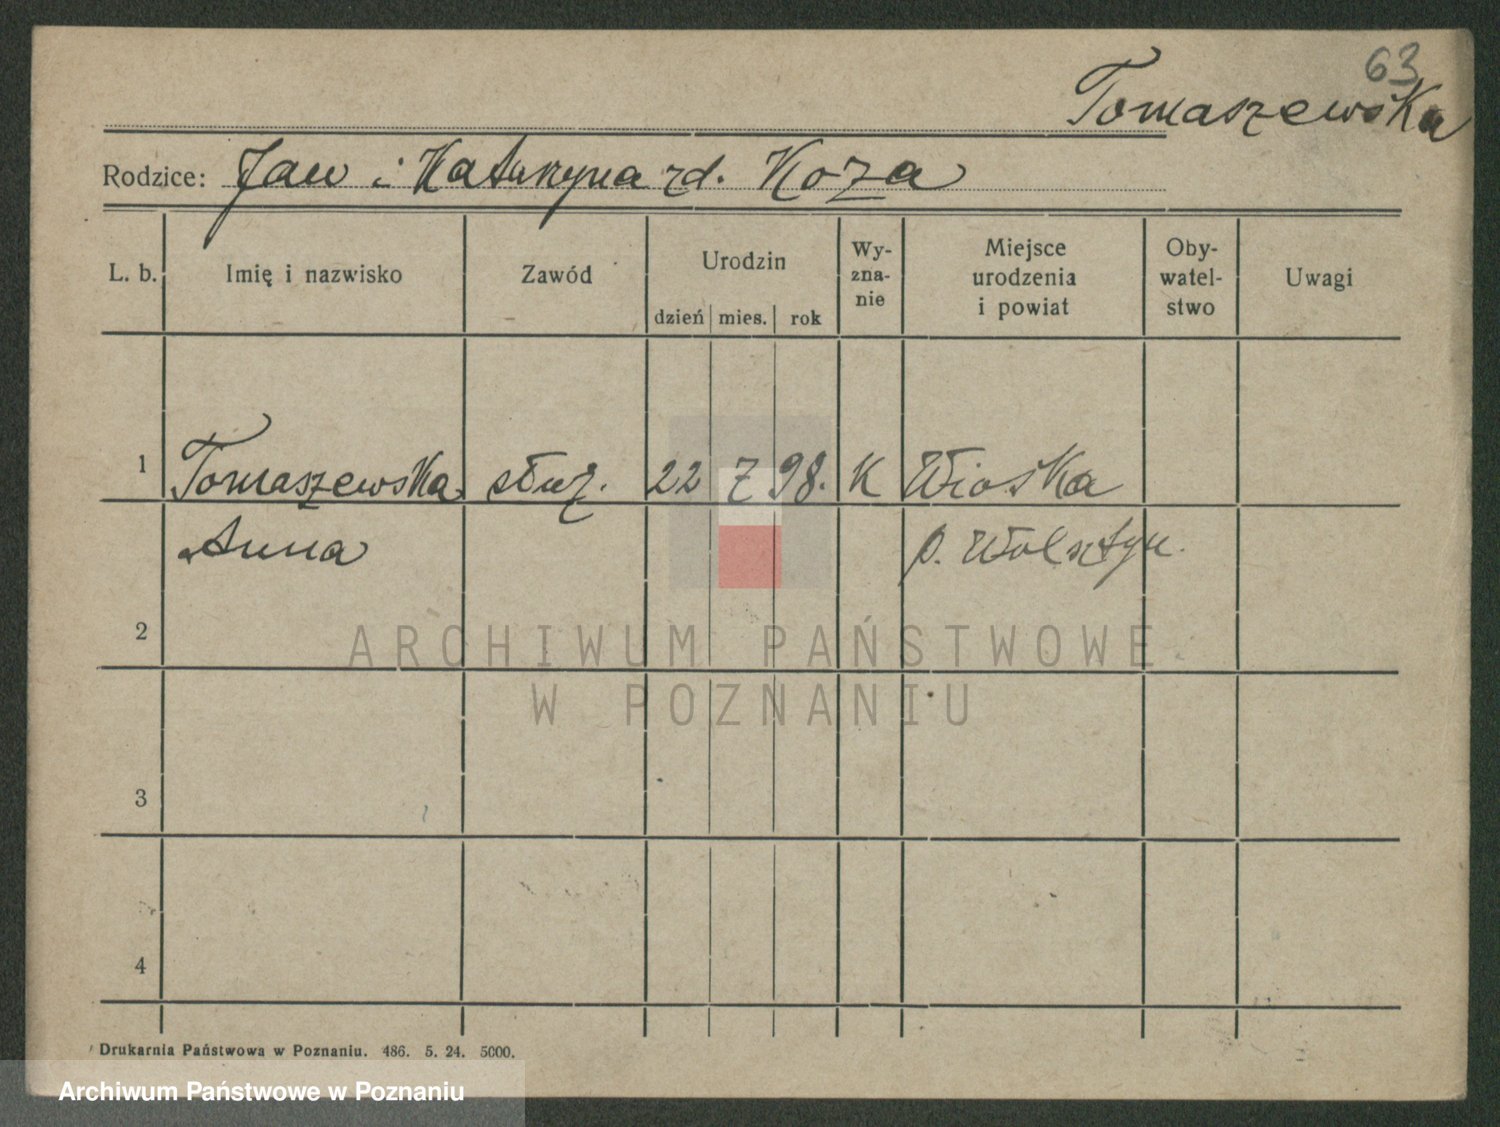 63
Tomaszewska
Rodzice: Jan i Katarzyna zd. Koza
L. b. Imię i nazwisko Zawód Urodzin dzień mies. rok Wy-zna-nie Miejsce urodzenia i powiat Oby-watel-stwo Uwagi
1 Tomaszewska służ. 22 7 98. K Wioska
Anna p. Wolsztyn.
2
ARCHIWUM PAŃSTWOWE
W POZNANIU
3
4
Drukarnia Państwowa w Poznaniu. 486. 5. 24. 5000.
Archiwum Państwowe w Poznaniu